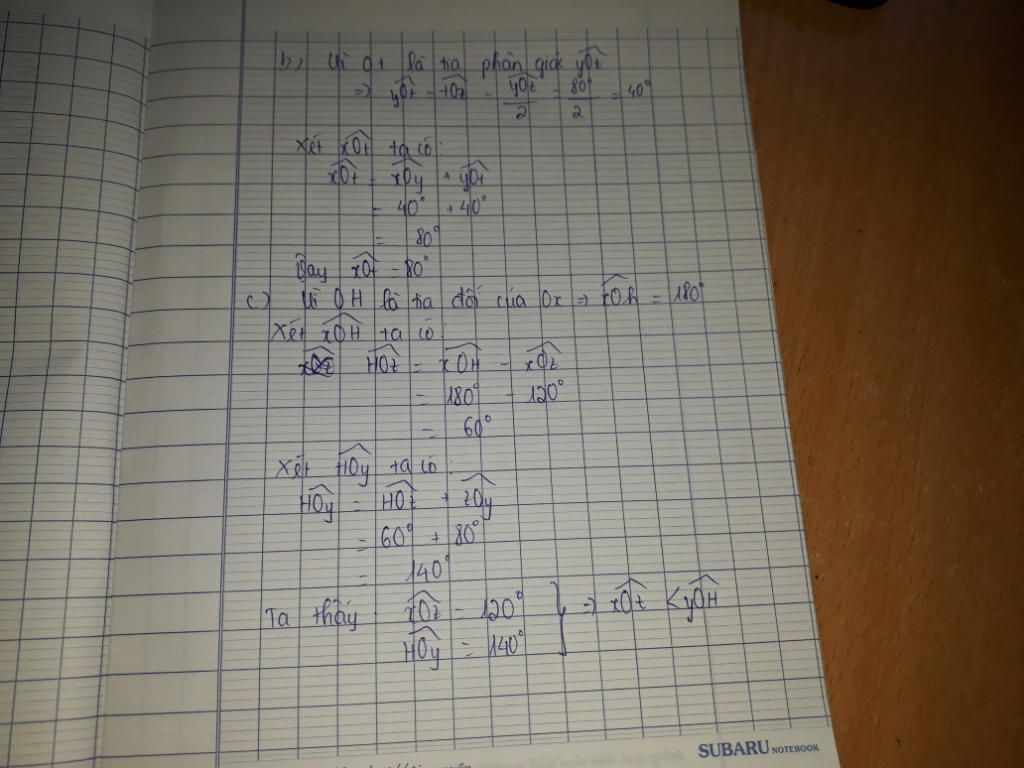 b) Vì Ot là tia phân giác yOt
=> yOt = tOz = yOz/2 = 80°/2 = 40°
Xét xOt ta có:
xOt = xOy + yOt
= 40° + 40°
= 80°
Vậy xOt = 80°
c) Vì OH là tia đối của Ox => xOh = 180°
Xét xOH ta có:
HOz = xOH - xOz
= 180° - 120°
= 60°
Xét HOy ta có:
HOy = HOz + zOy
= 60° + 80°
= 140°
Ta thấy: xOz = 120°
HOy = 140° } => xOz < yOH
SUBARU NOTEBOOK